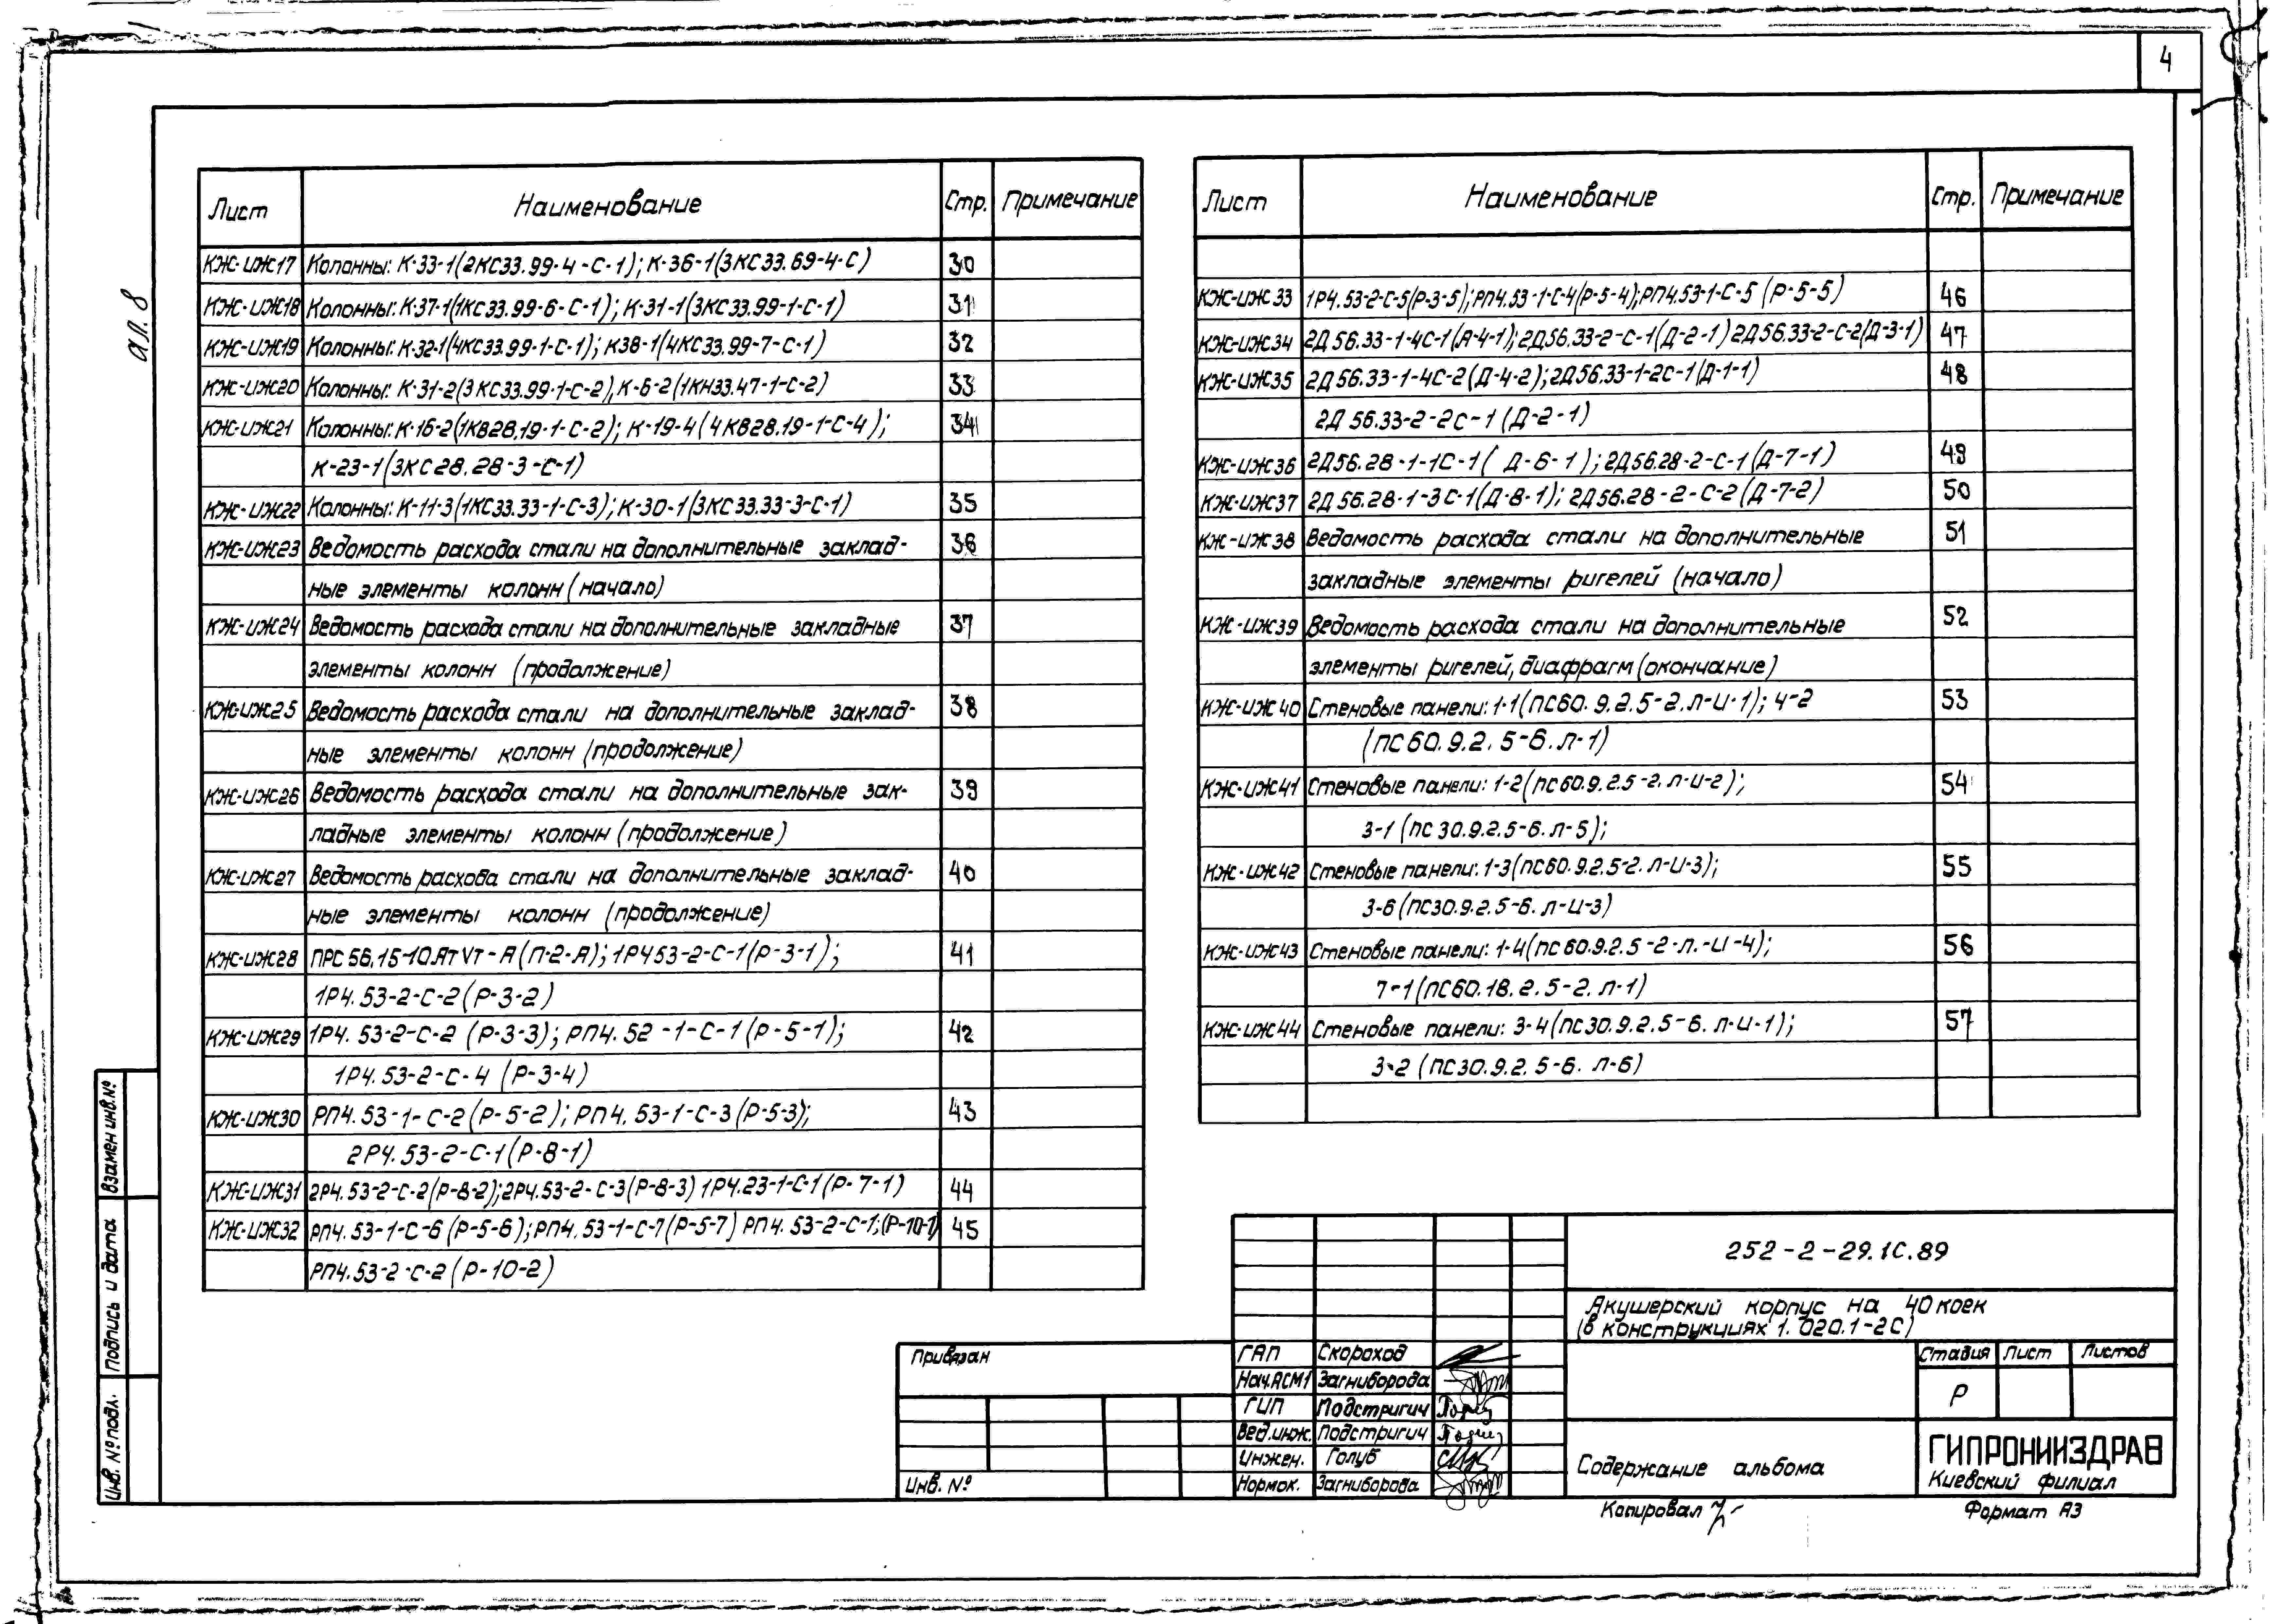 4
ал. 8
Лист Наименование Стр. Примечание
КЖ-ИЖ17 Колонны: К-33-1(2КС33.99-4-С-1); К-36-1(3КС33.69-4-С) 30
КЖ-ИЖ18 Колонны: К-37-1(1КС33.99-6-С-1); К-31-1(3КС33.99-1-С-1) 31
КЖ-ИЖ19 Колонны: К-32-1(4КС33.99-1-С-1); К38-1(4КС33.99-7-С-1) 32
КЖ-ИЖ20 Колонны: К-31-2(3КС33.99-1-С-2), К-6-2(1КН33.47-1-С-2) 33
КЖ-ИЖ21 Колонны: К-16-2(1КВ28.19-1-С-2); К-19-4(4КВ28.19-1-С-4); 34
К-23-1(3КС28.28-3-С-1)
КЖ-ИЖ22 Колонны: К-11-3(1КС33.33-1-С-3); К-30-1(3КС33.33-3-С-1) 35
КЖ-ИЖ23 Ведомость расхода стали на дополнительные заклад- 36
ные элементы колонн (начало)
КЖ-ИЖ24 Ведомость расхода стали на дополнительные закладные 37
элементы колонн (продолжение)
КЖ-ИЖ25 Ведомость расхода стали на дополнительные заклад- 38
ные элементы колонн (продолжение)
КЖ-ИЖ26 Ведомость расхода стали на дополнительные зак- 39
ладные элементы колонн (продолжение)
КЖ-ИЖ27 Ведомость расхода стали на дополнительные заклад- 40
ные элементы колонн (продолжение)
КЖ-ИЖ28 ПРС 56.15-10.АтVт-А(П-2-А); 1Р453-2-С-1(Р-3-1); 41
1Р4.53-2-С-2(Р-3-2)
КЖ-ИЖ29 1Р4.53-2-С-2 (Р-3-3); РП4.52-1-С-1(Р-5-1); 42
1Р4.53-2-С-4 (Р-3-4)
КЖ-ИЖ30 РП4.53-1-С-2(Р-5-2); РП4.53-1-С-3(Р-5-3); 43
2Р4.53-2-С-1(Р-8-1)
КЖ-ИЖ31 2Р4.53-2-С-2(Р-8-2); 2Р4.53-2-С-3(Р-8-3) 1Р4.23-1-С-1(Р-7-1) 44
КЖ-ИЖ32 РП4.53-1-С-6(Р-5-6); РП4.53-1-С-7(Р-5-7) РП4.53-2-С-1;(Р-10-1) 45
РП4.53-2-С-2(Р-10-2)
Лист Наименование Стр. Примечание
КЖ-ИЖ33 1Р4.53-2-С-5(Р-3-5); РП4.53-1-С-4(Р-5-4); РП4.53-1-С-5 (Р-5-5) 46
КЖ-ИЖ34 2Д56.33-1-4С-1(Д-4-1); 2Д56.33-2-С-1(Д-2-1) 2Д56.33-2-С-2(Д-3-1) 47
КЖ-ИЖ35 2Д56.33-1-4С-2(Д-4-2); 2Д56.33-1-2С-1(Д-1-1) 48
2Д56.33-2-2С-1(Д-2-1)
КЖ-ИЖ36 2Д56.28-1-1С-1( Д-6-1); 2Д56.28-2-С-1(Д-7-1) 49
КЖ-ИЖ37 2Д56.28-1-3С-1(Д-8-1); 2Д56.28-2-С-2(Д-7-2) 50
КЖ-ИЖ38 Ведомость расхода стали на дополнительные 51
закладные элементы ригелей (начало)
КЖ-ИЖ39 Ведомость расхода стали на дополнительные 52
элементы ригелей, диафрагм (окончание)
КЖ-ИЖ40 Стеновые панели: 1-1(ПС60.9.2.5-2.Л-И-1); 4-2 53
(ПС60.9.2.5-6.Л-1)
КЖ-ИЖ41 Стеновые панели: 1-2(ПС60.9.2.5-2.Л-И-2); 54
3-1(ПС30.9.2.5-6.Л-5);
КЖ-ИЖ42 Стеновые панели: 1-3(ПС60.9.2.5-2.Л-И-3); 55
3-6(ПС30.9.2.5-6.Л-И-3)
КЖ-ИЖ43 Стеновые панели: 1-4(ПС60.9.2.5-2-Л.-И-4); 56
7-1(ПС60.18.2.5-2.Л-1)
КЖ-ИЖ44 Стеновые панели: 3-4(ПС30.9.2.5-6.Л-И-1); 57
3-2(ПС30.9.2.5-6.Л-6)
252-2-29.1С.89
Акушерский корпус на 40 коек
(в конструкциях 1.020.1-2С)
Привязан
Инв. №
ГАП Скороход
Нач.АСМ1 Загниборода
ГИП Подстригич
Вед.инж. Подстригич
Инжен. Голуб
Нормок. Загниборода
Стадия Лист Листов
Р
Содержание альбома
ГИПРОНИИЗДРАВ
Киевский филиал
Копировал
Формат А3
Взамен инв.№
Подпись и дата
Инв. № подл.